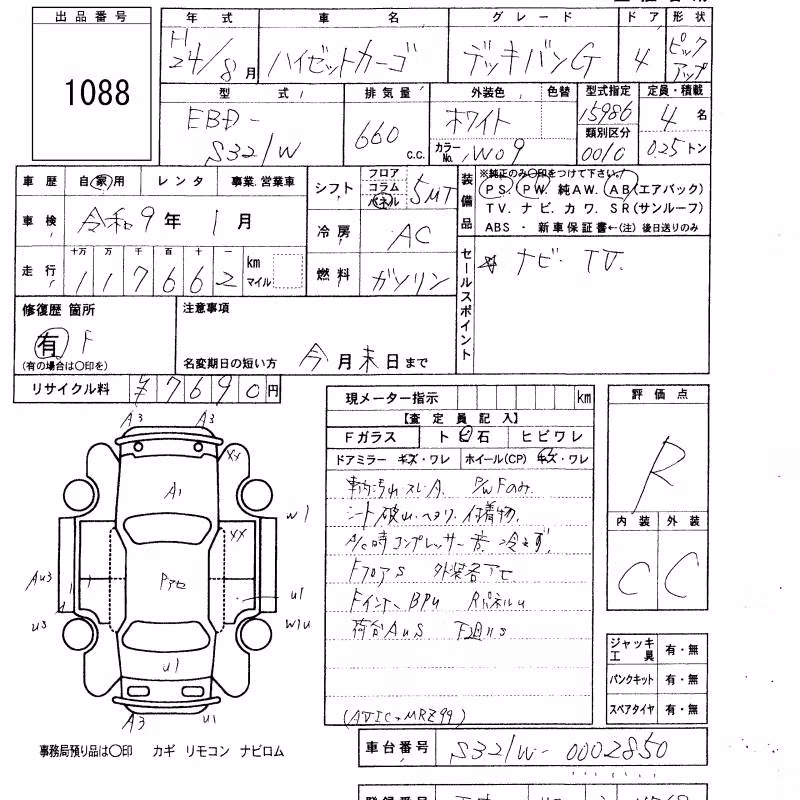 出品番号
1088
年式 車名 グレード ドア 形状
H24/8月 ハイゼットカーゴ デッキバンG 4 ピックアップ
型式 排気量 外装色 色替 型式指定 定員・積載
EBD-S321W 660 c.c. ホワイト 15986 4名
カラーNo. W09 類別区分 0010 0.25トン
車歴 自家用 レンタ 事業.営業車
車検 令和9年1月
走行 十万 万 千 百 十 一
117662 km マイル
シフト フロア コラム パネル 5MT
冷房 AC
燃料 ガソリン
装備品
※純正のみ○印をつけて下さい。
PS. PW. 純AW. AB(エアバック)
TV. ナビ. カワ. SR(サンルーフ)
ABS ・ 新車保証書←(注)後日送りのみ
セールスポイント
☆ ナビ. TV.
修復歴 箇所
有 F
(有の場合は○印を)
注意事項
名変期日の短い方 今月末日まで
リサイクル料 ¥7690円
現メーター指示 km
【査定員記入】
Fガラス ト ビ 石 ヒビワレ
ドアミラー キズ・ワレ ホイール(CP) キズ・ワレ
車内汚れ.スレ.A. P/WFのみ.
シート破れ.ヘタリ.付着物.
A/C時コンプレッサー音.冷えず.
FフロアS 外装各アセ
Fインナー BPU RパネルU
荷台AUS 下廻りS
(AVIC-MRZ99)
評価点
R
内装 外装
C C
ジャッキ工具 有・無
パンクキット 有・無
スペアタイヤ 有・無
A3 A3
XX
A1
W1
XX
AU3
Pアセ
U1
U3
W1U
U1
A3 U1
事務局預り品は○印 カギ リモコン ナビロム
車台番号 S321W-0002850